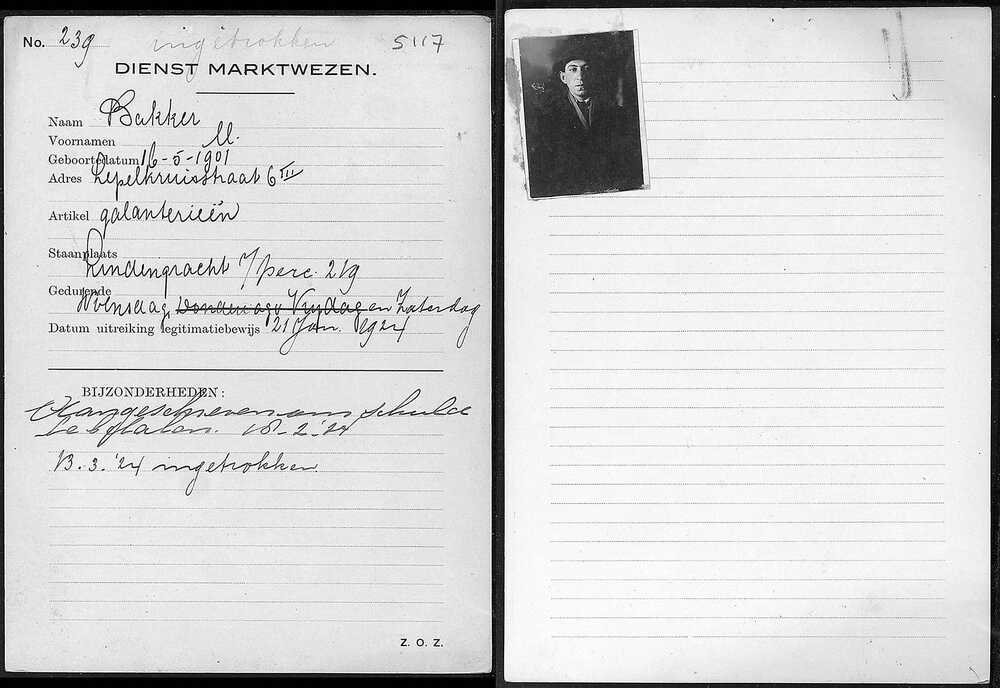 No. 239 ingetrokken 5117
DIENST MARKTWEZEN.
Naam Bakker
Voornamen M.
Geboortedatum 16-5-1901
Adres Lepelkruisstraat 6 III
Artikel galanterieën
Staanplaats
Lindengracht t/perc. 219
Gedurende
Woensdag, Donderdag Vrijdag en Zaterdag
Datum uitreiking legitimatiebewijs 21 Jan. 1924
BIJZONDERHEDEN:
Aangeschreven om schuld
te betalen. 18-2-'24
13.3.'24 ingetrokken
Z. O. Z.